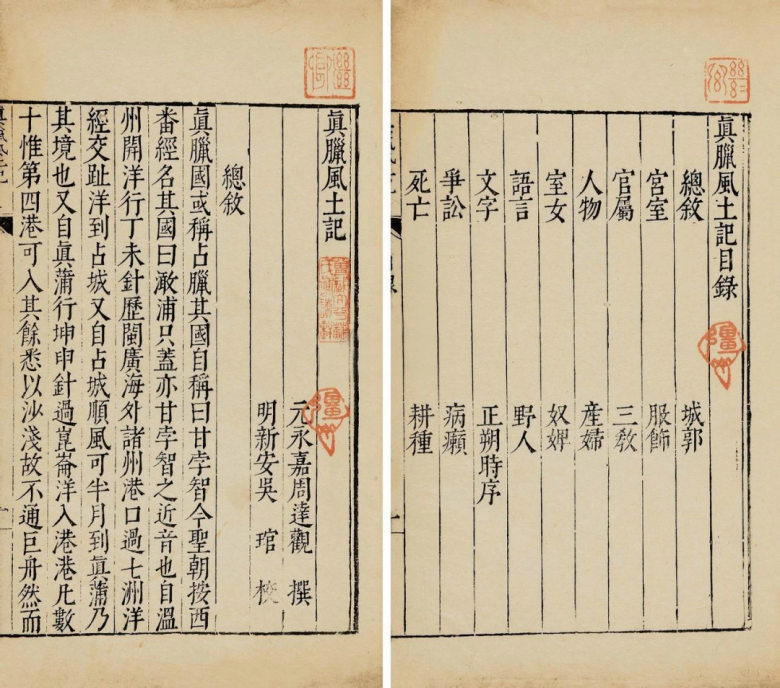 眞臘風土記目錄
總敘 城郭
宮室 服飾
官屬 三敎
人物 産婦
室女 奴婢
語言 野人
文字 正朔時序
爭訟 病癩
死亡 耕種
眞臘風土記
元永嘉周達觀 撰
明新安吳 琯 校
總敘
眞臘國或稱占臘其國自稱曰甘孛智今聖朝按西
番經名其國曰澉浦只蓋亦甘孛智之近音也自溫
州開洋行丁未針歷閩廣海外諸州港口過七洲洋
經交趾洋到占城又自占城順風可半月到眞蒲乃
其境也又自眞蒲行坤申針過崑崙洋入港港凡數
十惟第四港可入其餘悉以沙淺故不通巨舟然而